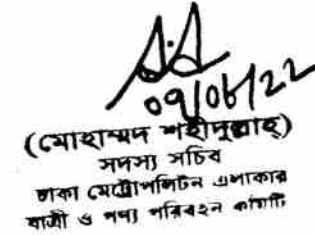 09/06/22
(মোহাম্মদ শহীদুল্লাহ্)
সদস্য সচিব
ঢাকা মেট্রোপলিটন এলাকার
যাত্রী ও পণ্য পরিবহন কমিটি